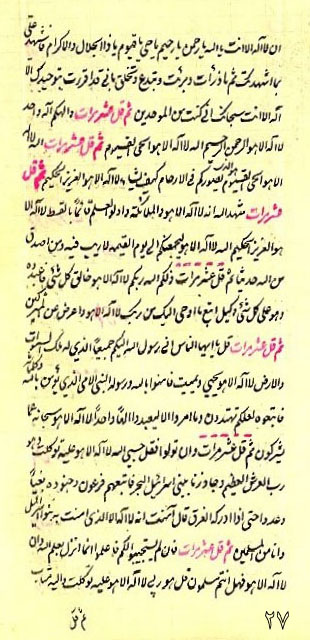 ان لا اله الا انت يا الله يا رحمن يا رحيم يا حي يا قيوم يا ذا الجلال والاكرام
اله الا انت سبحانك اني كنت من الموحدين ثم قل عشر مرات والهكم اله واحد
لا اله الا هو الرحمن الرحيم الله لا اله الا هو الحي القيوم ثم قل عشر مرات الم الله لا اله
الا هو الحي القيوم هو الذي يصوركم في الارحام كيف يشاء لا اله الا هو العزيز الحكيم ثم قل
عشر مرات شهد الله انه لا اله الا هو والملائكة واولو العلم قائما بالقسط لا اله الا
هو العزيز الحكيم الله لا اله الا هو ليجمعنكم الى يوم القيمة لا ريب فيه ومن اصدق
من الله حديثا ثم قل عشر مرات ذلكم الله ربكم لا اله الا هو خالق كل شئ فاعبدوه
وهو على كل شئ وكيل اتبع ما اوحي اليك من ربك لا اله الا هو واعرض عن المشركين
ثم قل عشر مرات قل يا ايها الناس اني رسول الله اليكم جميعا الذي له ملك السموات
والارض لا اله الا هو يحيي ويميت فامنوا بالله ورسوله النبي الامي الذي يؤمن بالله وكلماته
فاتبعوه لعلكم تهتدون وما امروا الا ليعبدوا الها واحدا لا اله الا هو سبحانه عما
يشركون ثم قل عشر مرات وان تولوا فقل حسبي الله لا اله الا هو عليه توكلت وهو
رب العرش العظيم وجاوزنا ببني اسرائيل البحر فاتبعهم فرعون وجنوده بغيا
وعدوا حتى اذا ادركه الغرق قال آمنت انه لا اله الا الذي امنت به بنو اسرائيل
وانا من المسلمين ثم قل عشر مرات فان لم يستجيبوا لكم فاعلموا انما انزل بعلم الله وان
لا اله الا هو فهل انتم مسلمون قل هو ربي لا اله الا هو عليه توكلت واليه متاب
ثم قل
٢٧